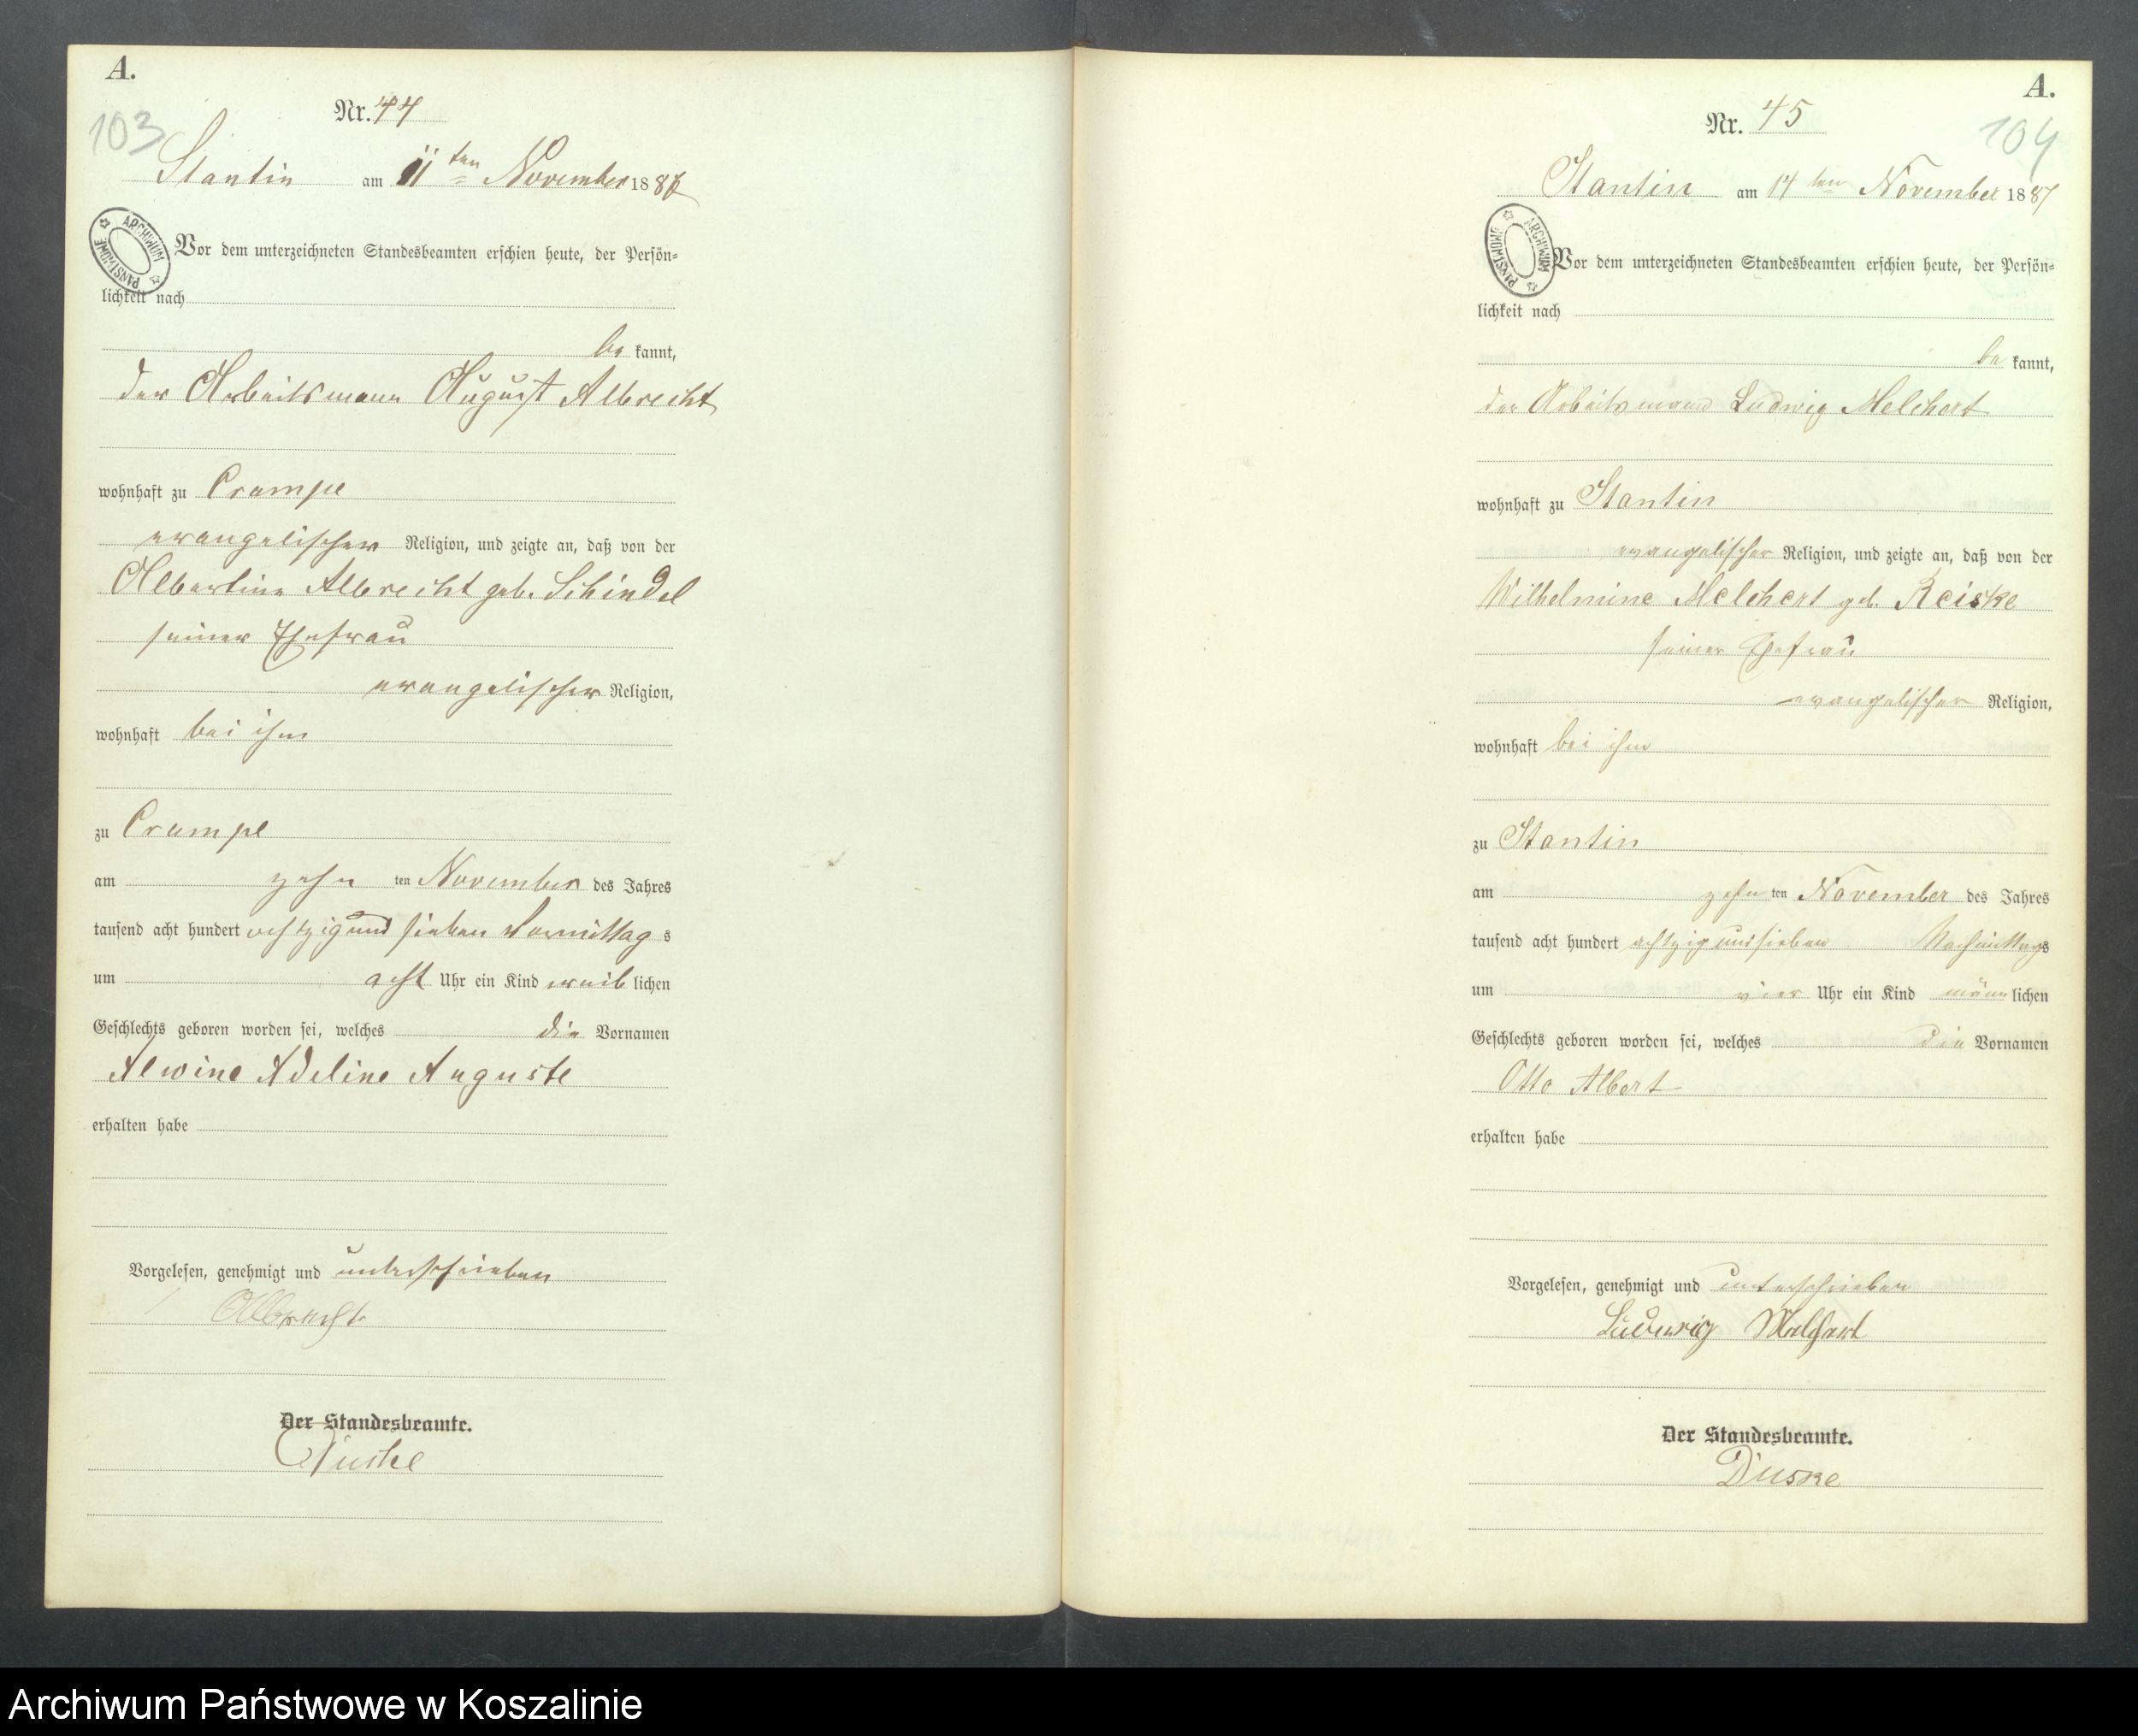 A.
103
Nr. 44
Stantin am 11 ten November 1887
ARCHIWUM PAŃSTWOWE
Vor dem unterzeichneten Standesbeamten erschien heute, der Persön-
lichkeit nach
be kannt,
der Arbeitsmann August Albrecht
wohnhaft zu Crampe
evangelischer Religion, und zeigte an, daß von der
Albertine Albrecht geb. Schindel
seiner Ehefrau
evangelischer Religion,
wohnhaft bei ihm
zu Crampe
am zehn ten November des Jahres
tausend acht hundert achtzig und sieben Vormittag s
um acht Uhr ein Kind weib lichen
Geschlechts geboren worden sei, welches die Vornamen
Alwine Adeline Auguste
erhalten habe
Vorgelesen, genehmigt und unterschrieben
Albrecht
Der Standesbeamte.
Duske
A.
104
Nr. 45
Stantin am 14 ten November 1887
ARCHIWUM PAŃSTWOWE
Vor dem unterzeichneten Standesbeamten erschien heute, der Persön-
lichkeit nach
be kannt,
der Arbeitsmann Ludwig Melchert
wohnhaft zu Stantin
evangelischer Religion, und zeigte an, daß von der
Wilhelmine Melchert geb. Reiske
seiner Ehefrau
evangelischer Religion,
wohnhaft bei ihm
zu Stantin
am zehn ten November des Jahres
tausend acht hundert achtzig und sieben Nachmittags
um vier Uhr ein Kind männ lichen
Geschlechts geboren worden sei, welches die Vornamen
Otto Albert
erhalten habe
Vorgelesen, genehmigt und unterschrieben
Ludwig Melchert
Der Standesbeamte.
Duske
Archiwum Państwowe w Koszalinie